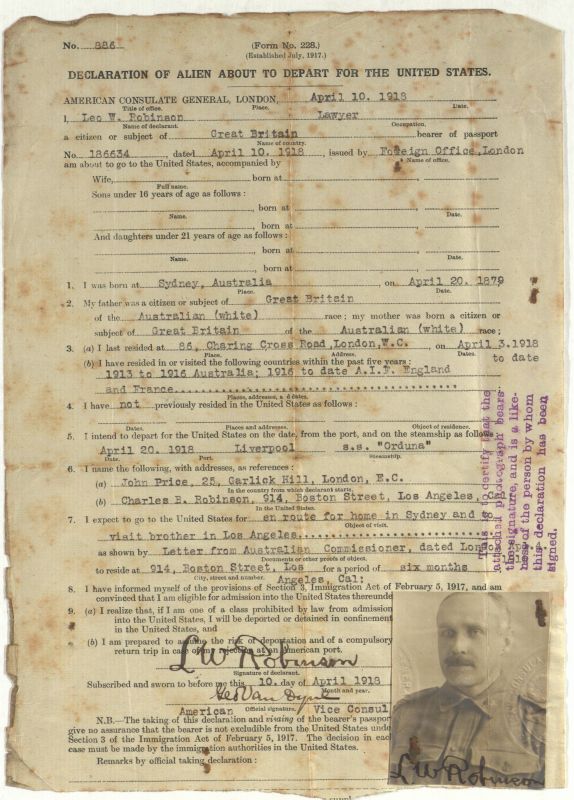 No. 886 (Form No. 228.)
(Established July, 1917.)
DECLARATION OF ALIEN ABOUT TO DEPART FOR THE UNITED STATES.
AMERICAN CONSULATE GENERAL, LONDON, April 10. 1918
Title of office. Place. Date.
I, Leo W. Robinson Lawyer
Name of declarant. Occupation.
a citizen or subject of Great Britain bearer of passport
Name of country.
No. 186634 , dated April 10. 1918 , issued by Foreign Office, London
Name of office.
am about to go to the United States, accompanied by
Wife, born at
Full name.
Sons under 16 years of age as follows :
, born at
Name. Date.
, born at
And daughters under 21 years of age as follows :
, born at
Name. Date.
, born at
1. I was born at Sydney, Australia , on April 20. 1879
Place. Date.
2. My father was a citizen or subject of Great Britain
of the Australian (white) race; my mother was born a citizen or
subject of Great Britain of the Australian (white) race ;
3. (a) I last resided at 86, Charing Cross Road, London, W.C. , on April 3. 1918
Place. Address. Dates.
to date
(b) I have resided in or visited the following countries within the past five years :
1913 to 1916 Australia; 1916 to date A.I.F. England
and France
Places, addresses, and dates.
4. I have not previously resided in the United States as follows :
Dates. Places and addresses. Object of residence.
5. I intend to depart for the United States on the date, from the port, and on the steamship as follows
April 20. 1918 Liverpool s.s. "Orduna"
Date. Port. Steamship.
6. I name the following, with addresses, as references :
(a) John Price, 25, Garlick Hill, London, E.C.
In the country from which declarant starts.
(b) Charles B. Robinson, 914, Boston Street, Los Angeles, Cal
In the United States.
7. I expect to go to the United States for en route for home in Sydney and to
Object of visit.
visit brother in Los Angeles
as shown by Letter from Australian Commissioner, dated London
Documents or other proofs of object.
to reside at 914, Boston Street, Los for a period of six months
City, street and number. Angeles, Cal:
8. I have informed myself of the provisions of Section 3, Immigration Act of February 5, 1917, and am
convinced that I am eligible for admission into the United States thereunder
9. (a) I realize that, if I am one of a class prohibited by law from admission
into the United States, I will be deported or detained in confinement
in the United States, and
(b) I am prepared to assume the risk of deportation and of a compulsory
return trip in case of my rejection at an American port.
L W Robinson
Signature of declarant.
Subscribed and sworn to before me this 10. day of April 1918
Month and year.
Geo Van Dyne
American Official signature. Vice Consul
N.B.—The taking of this declaration and visaing of the bearer's passport
give no assurance that the bearer is not excludible from the United States under
Section 3 of the Immigration Act of February 5, 1917. The decision in each
case must be made by the immigration authorities in the United States.
Remarks by official taking declaration :
This is to certify that the
attached photograph bears
the signature, and is a like-
ness of the person by whom
this declaration has been
signed.
L W Robinson